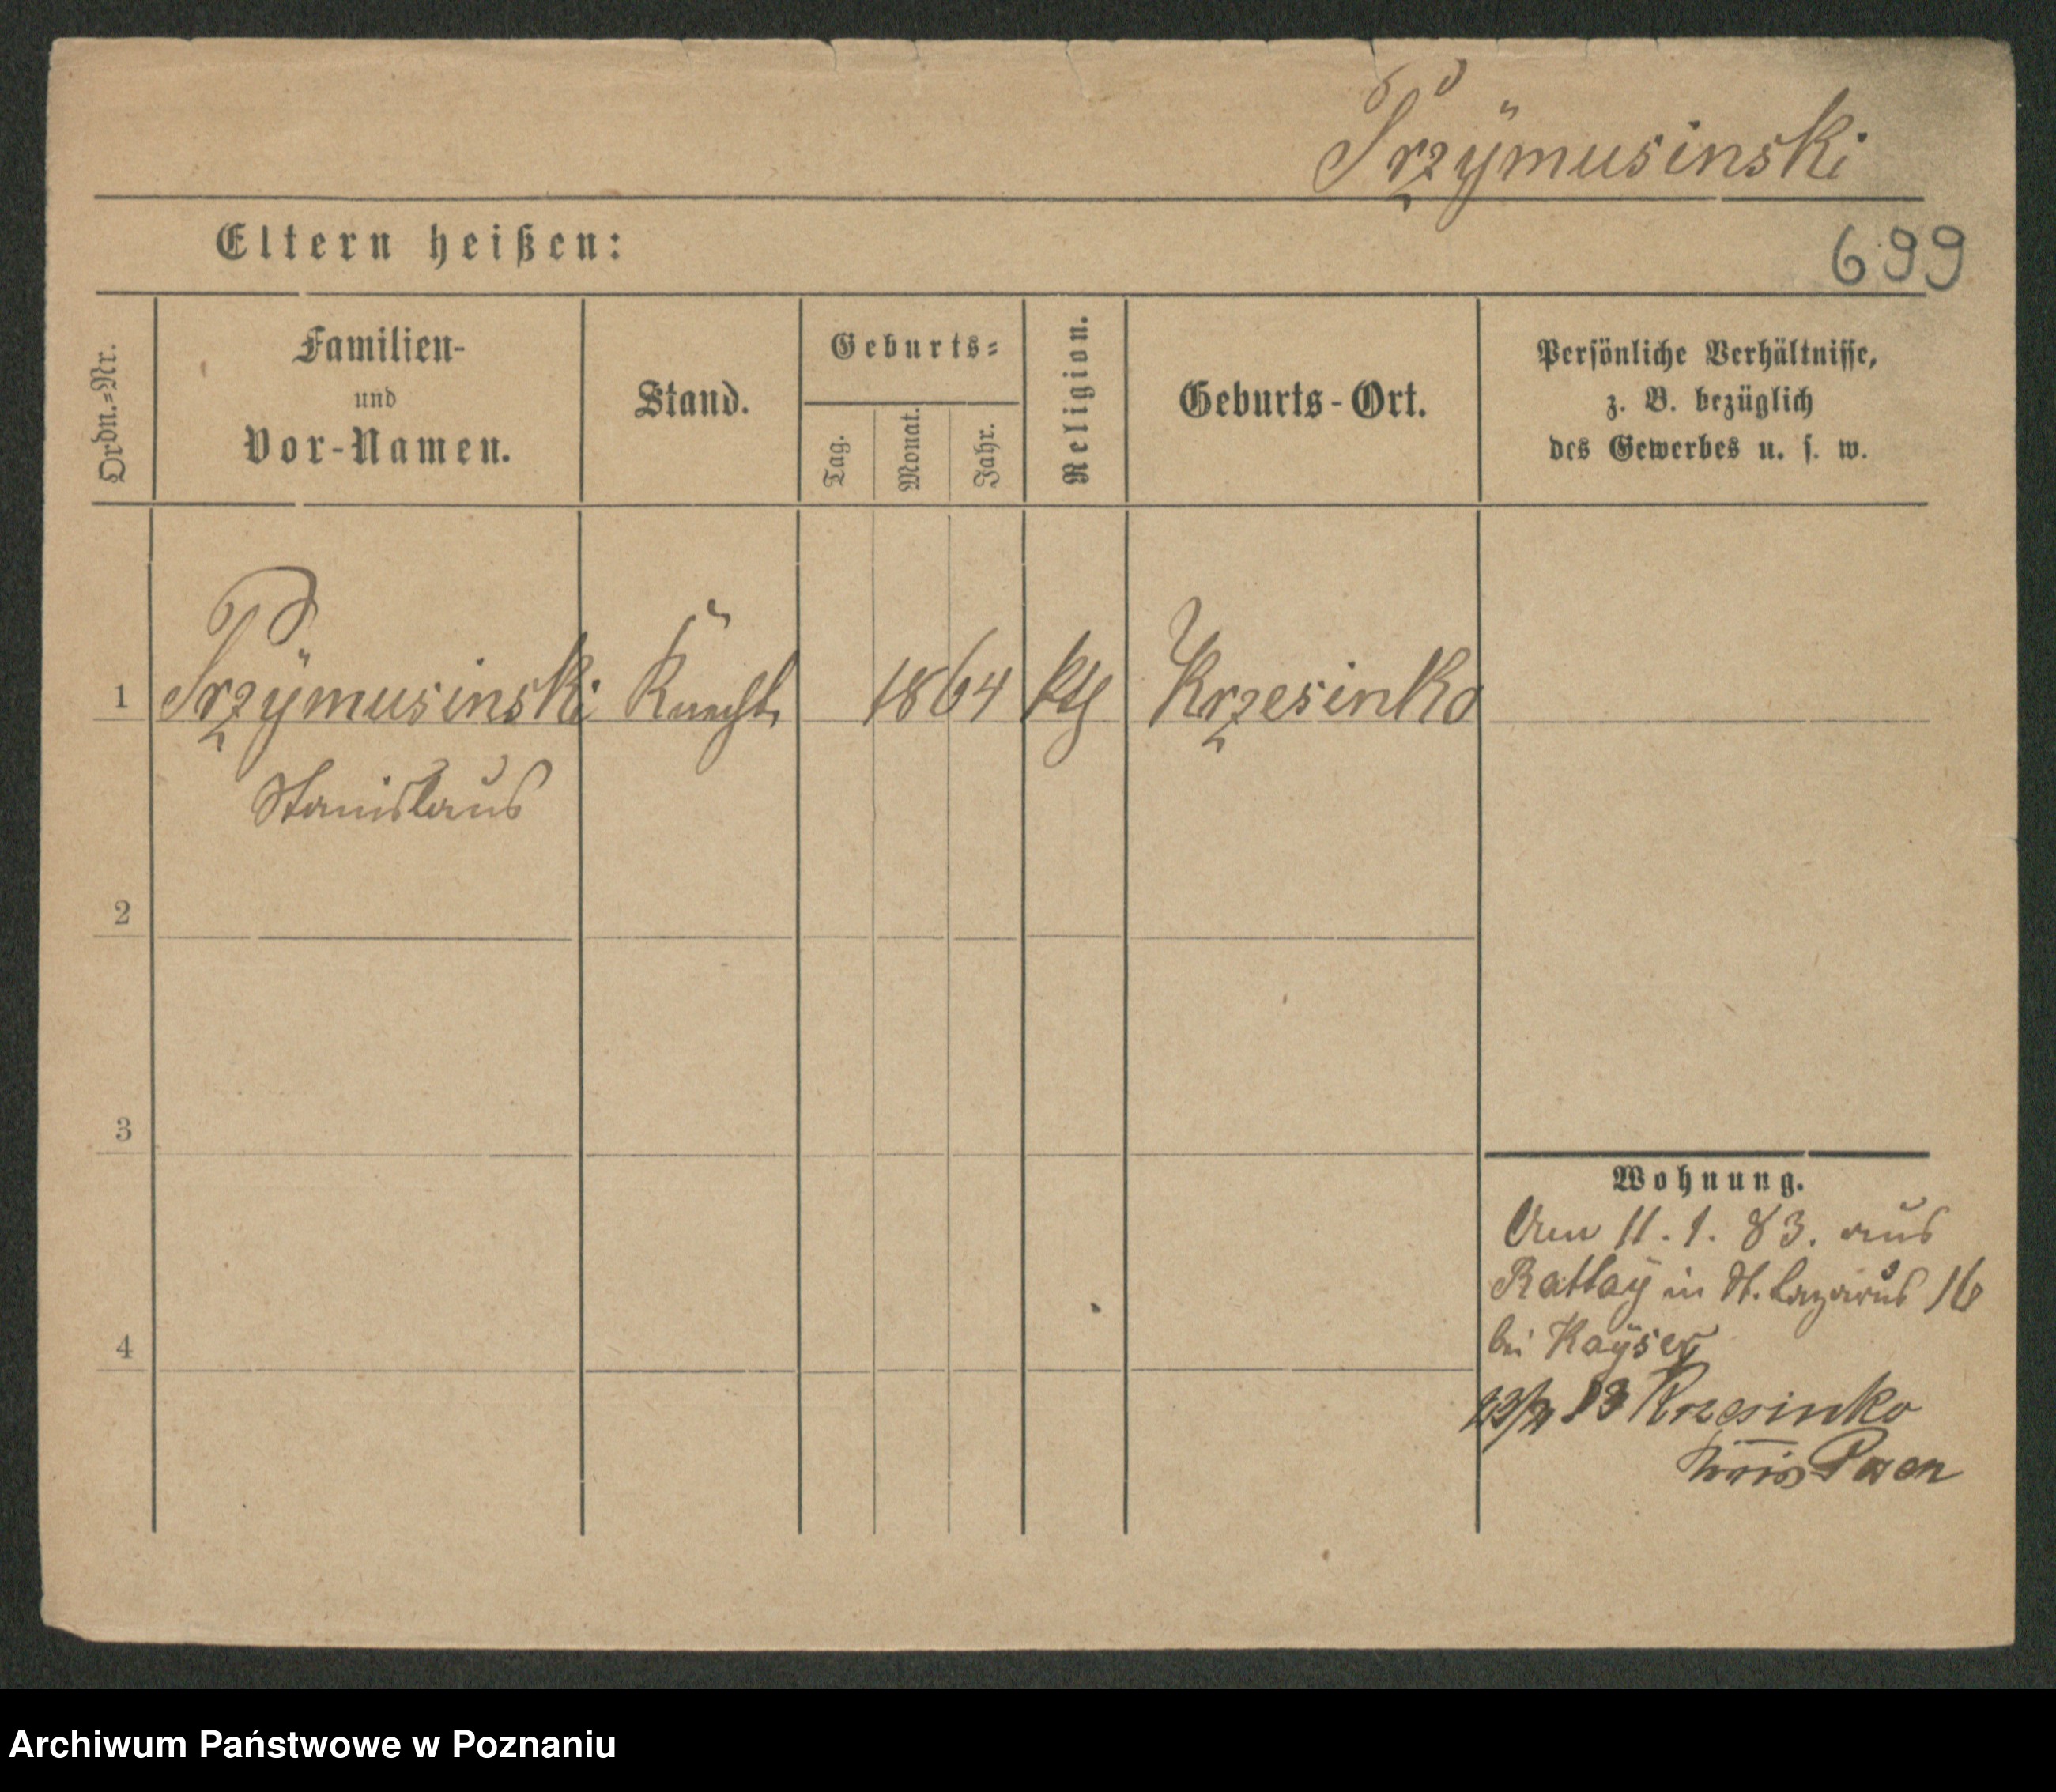 Przymusinski
Eltern heißen:
699
Ordn.=Nr.
Familien-
und
Vor-Namen.
Stand.
Geburts=
Tag.
Monat.
Jahr.
Religion.
Geburts-Ort.
Persönliche Verhältnisse,
z. B. bezüglich
des Gewerbes u. s. w.
1 Przymusinski Knecht 1864 kth Krzesinko
Stanislaus
2
3
4
Wohnung.
Am 11. 1. 83. aus
Rattay in St. Lazarus 16
bei Kayser
83 Krzesinko
Kreis Posen
Archiwum Państwowe w Poznaniu